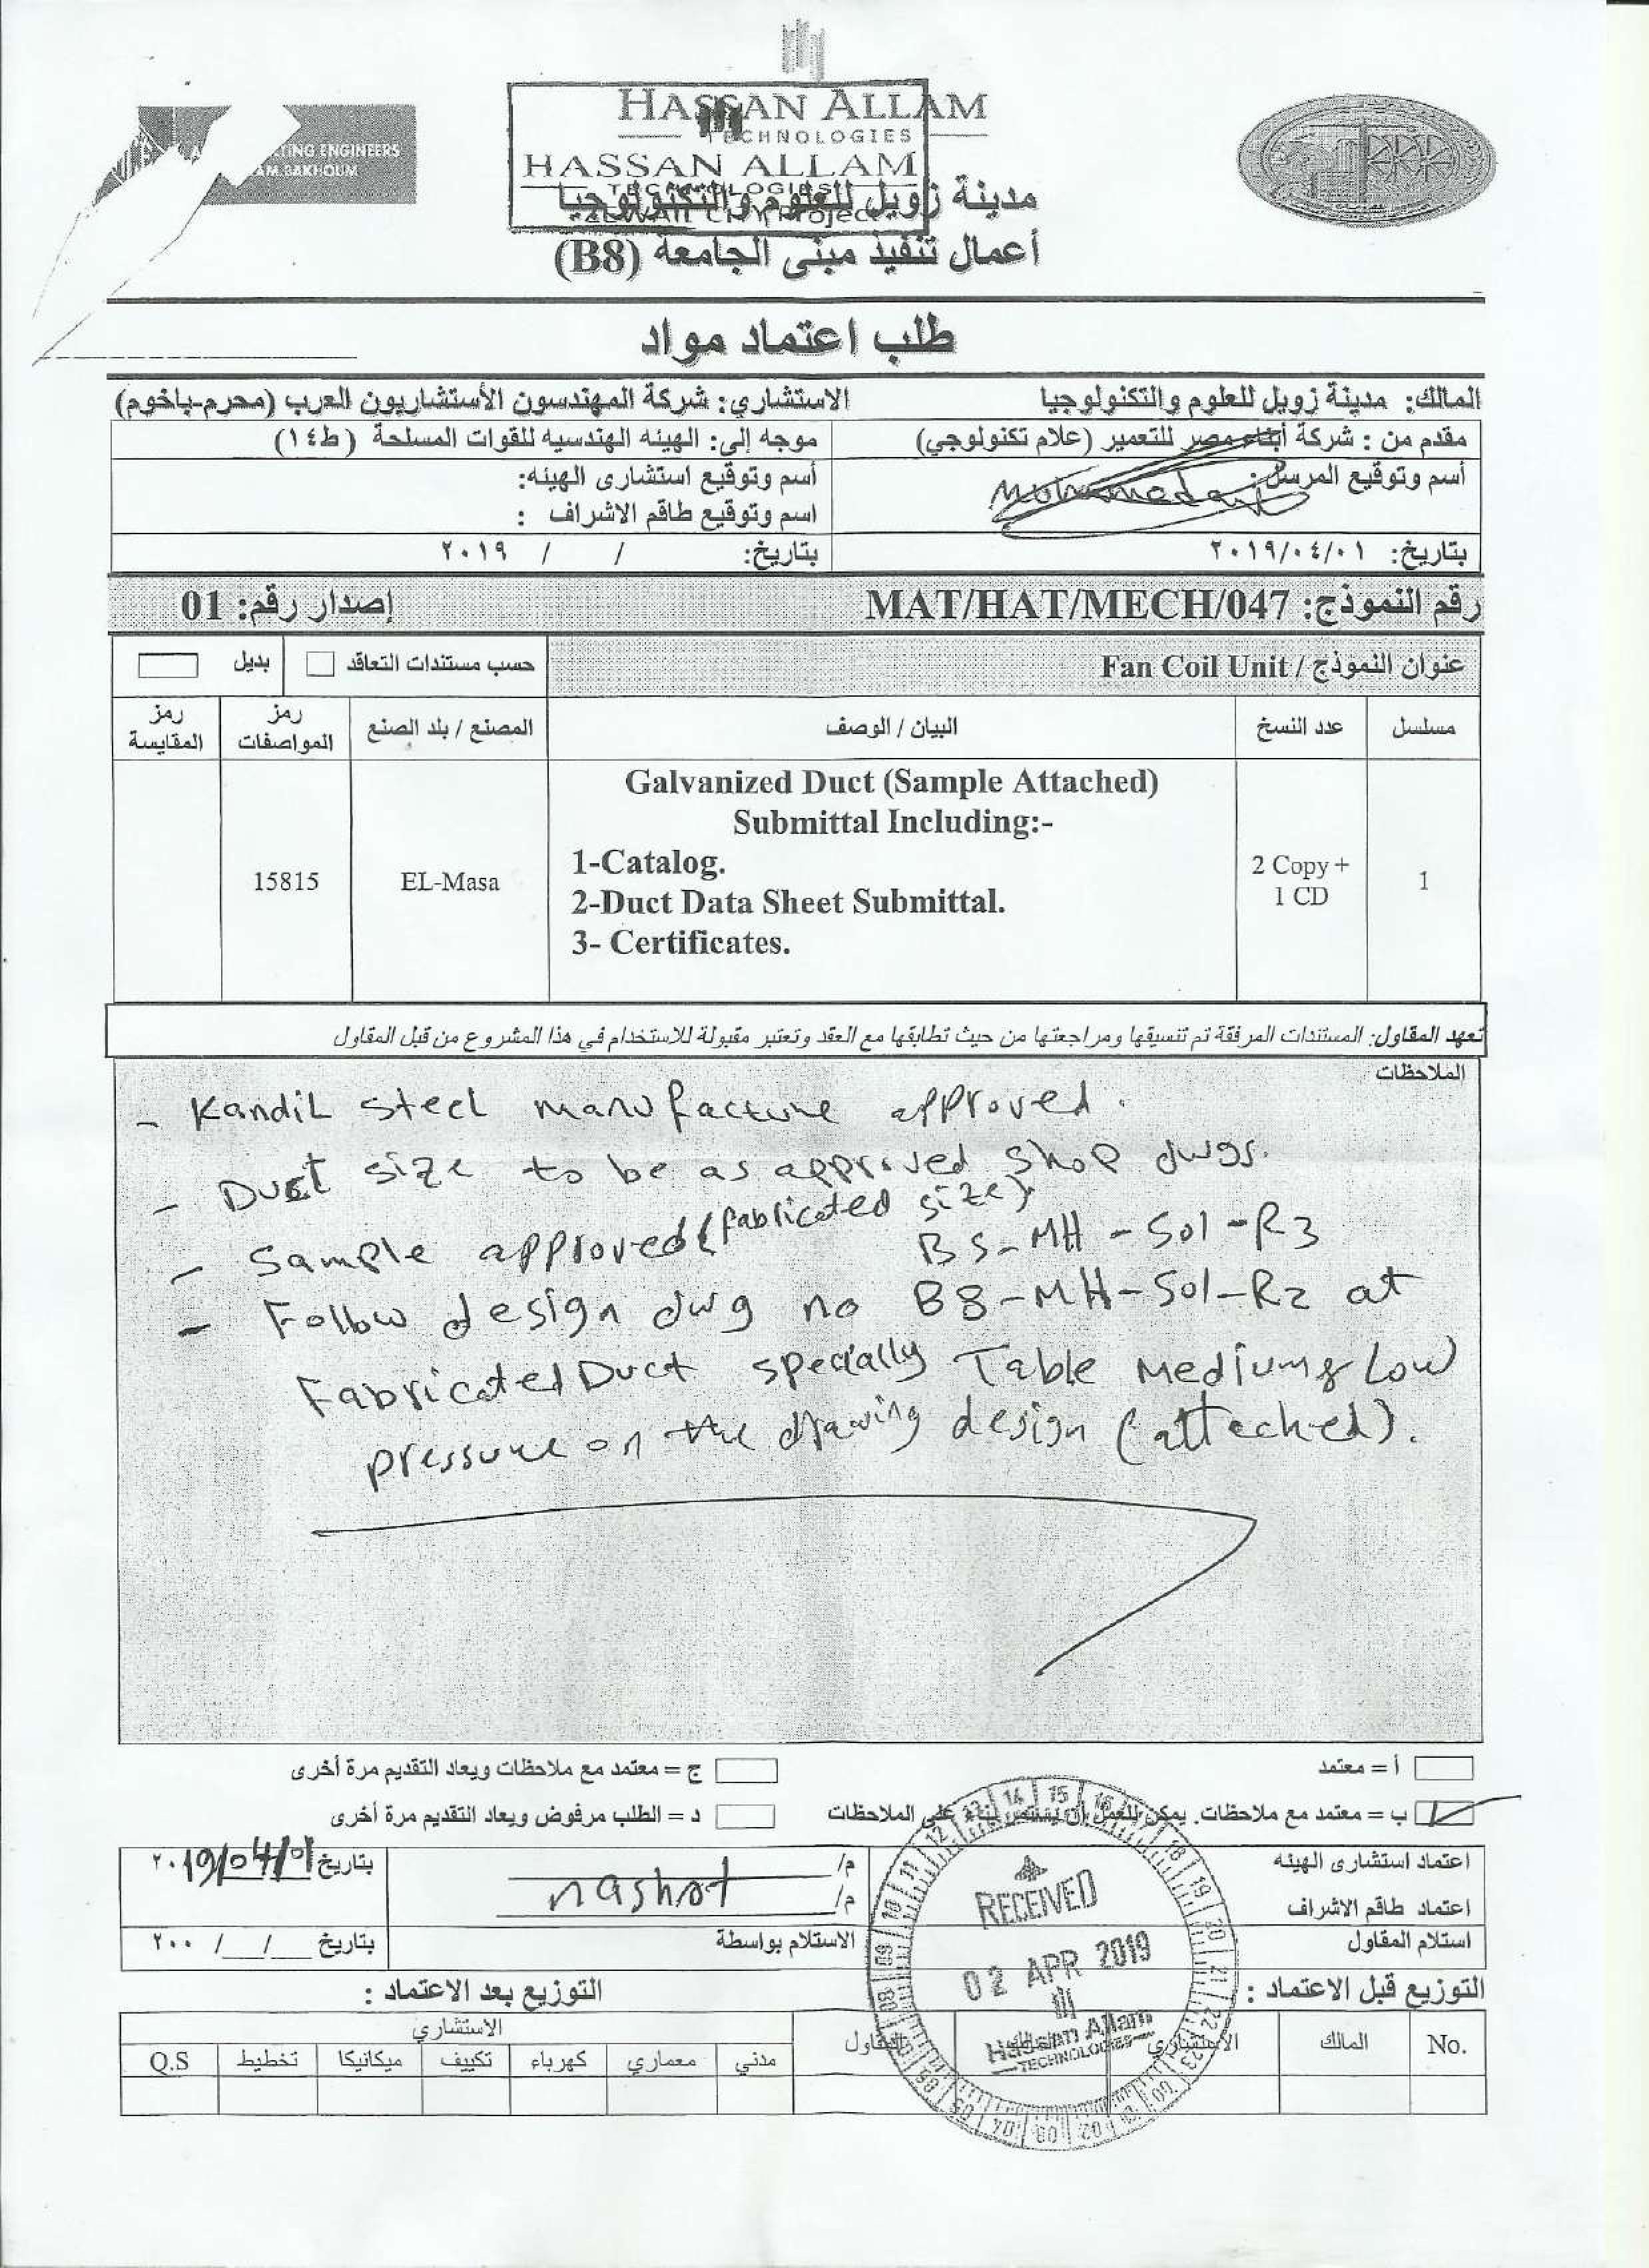 HASSAN ALLAM
TECHNOLOGIES
HASSAN ALLAM
TECHNOLOGIES
ENGINEERS
AM.BAKHOUM
مدينة زويل للعلوم والتكنولوجيا
أعمال تنفيذ مبنى الجامعة (B8)
طلب اعتماد مواد
المالك: مدينة زويل للعلوم والتكنولوجيا
الاستشاري: شركة المهندسون الأستشاريون العرب (محرم-باخوم)
مقدم من : شركة أبناء مصر للتعمير (علام تكنولوجي)
موجه إلى: الهيئه الهندسيه للقوات المسلحة (ط١٤)
أسم وتوقيع المرسل:
أسم وتوقيع استشارى الهيئه:
اسم وتوقيع طاقم الاشراف :
بتاريخ: ٢٠١٩/٠٤/٠١
بتاريخ: / / ٢٠١٩
رقم النموذج: MAT/HAT/MECH/047
إصدار رقم: 01
عنوان النموذج / Fan Coil Unit
حسب مستندات التعاقد
بديل
مسلسل
عدد النسخ
البيان / الوصف
المصنع / بلد الصنع
رمز المواصفات
رمز المقايسة
1
2 Copy +
1 CD
Galvanized Duct (Sample Attached)
Submittal Including:-
1-Catalog.
2-Duct Data Sheet Submittal.
3- Certificates.
EL-Masa
15815
تعهد المقاول: المستندات المرفقة تم تنسيقها ومراجعتها من حيث تطابقها مع العقد وتعتبر مقبولة للاستخدام في هذا المشروع من قبل المقاول
الملاحظات
- Kandil steel manufacture approved.
- Duct size to be as approved shop dwgs.
- Sample approved (fabricated size).
BS-MH-Sol-R3
- Follow design dwg no B8-MH-Sol-R2 at
Fabricated Duct specially Table Medium & Low
pressure on the drawing design (attached).
أ = معتمد
ج = معتمد مع ملاحظات ويعاد التقديم مرة أخرى
ب = معتمد مع ملاحظات. يمكن للعمل أن يستمر بناء على الملاحظات
د = الطلب مرفوض ويعاد التقديم مرة أخرى
اعتماد استشارى الهيئه
م/
اعتماد طاقم الاشراف
م/ nashot
بتاريخ ٢٠19/04/01
استلام المقاول
الاستلام بواسطة
بتاريخ __/__/ ٢٠٠
RECEIVED
02 APR 2019
Hassan Allam
TECHNOLOGIES
التوزيع قبل الاعتماد :
التوزيع بعد الاعتماد :
No.
المالك
الاستشاري
المقاول
الاستشاري
مدني
معماري
كهرباء
تكييف
ميكانيكا
تخطيط
Q.S